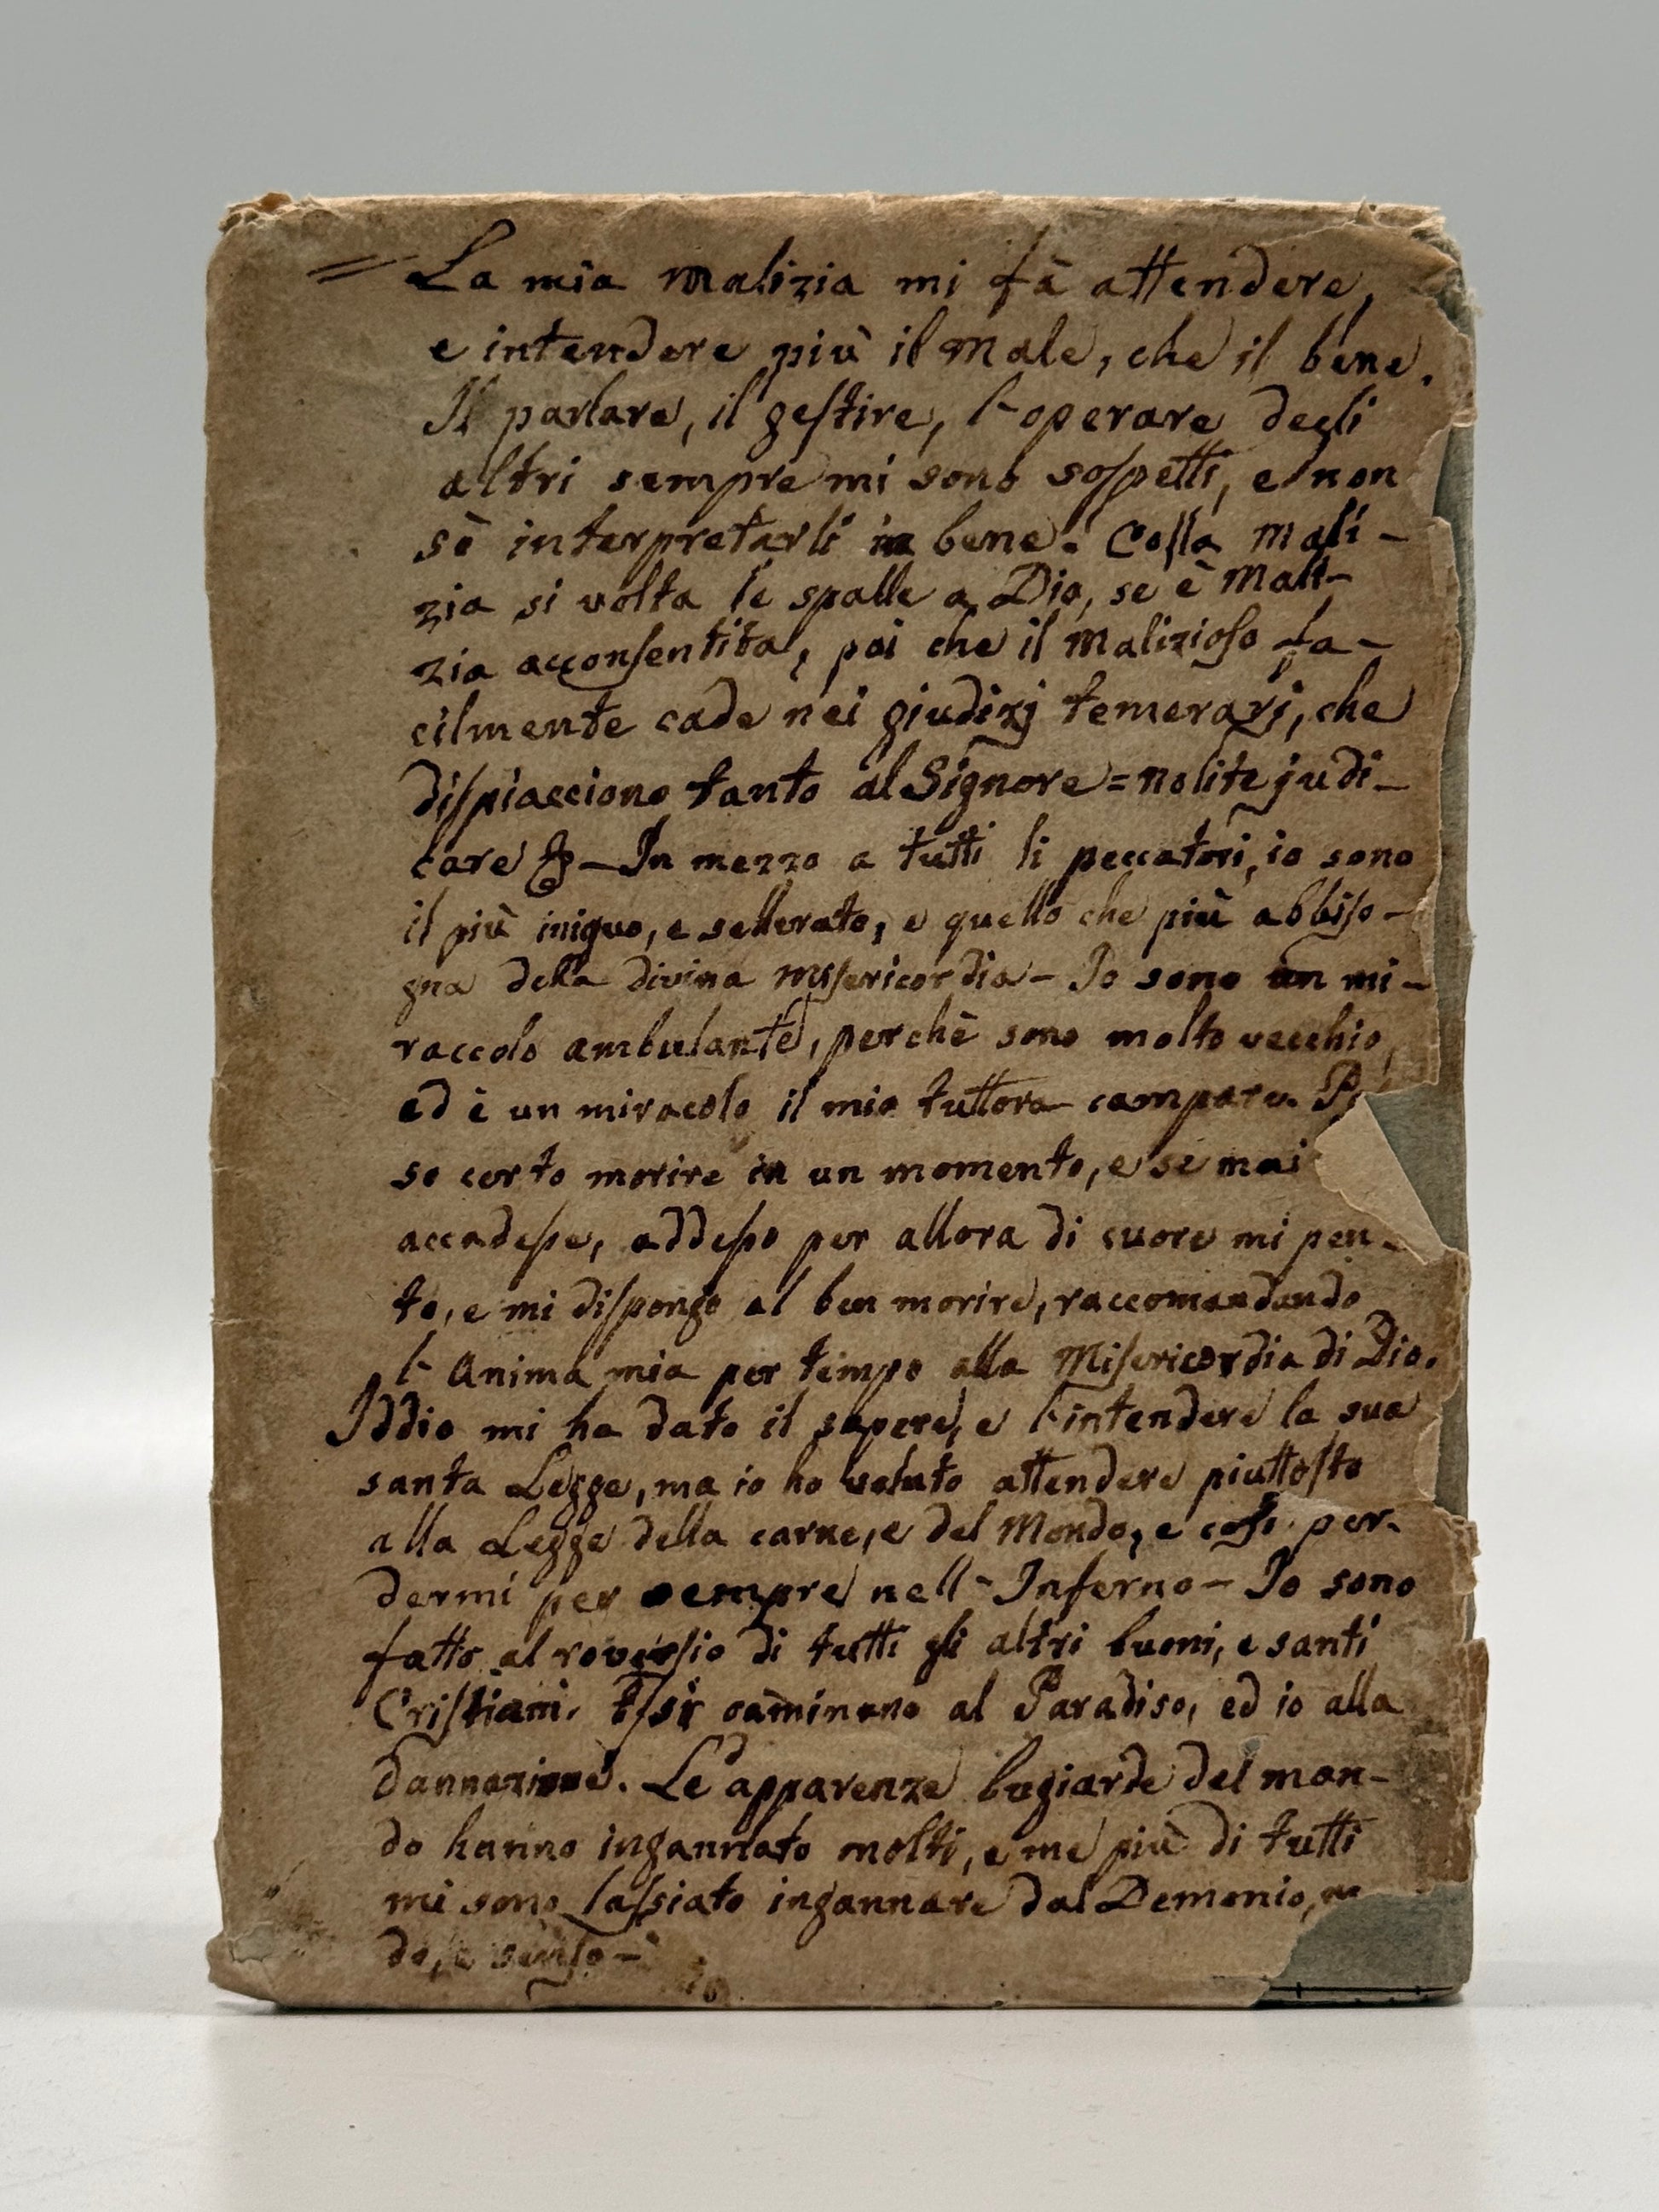 = La mia malizia mi fà attendere,
e intendere più il male, che il bene.
Il parlare, il geſtire, l'operare degli
altri sempre mi sono soſpetti, e non
sò interpretarli in bene. Colla mali-
zia si volta le spalle a Dio, se è mali-
zia acconſentita, poi che il malizioſo fa-
cilmente cade nei giudizj temerarj, che
diſpiacciono tanto al Signore = nolite judi-
care & — In mezzo a tutti li peccatori, io sono
il più iniquo, e sellerato, e quello che più abbiſo-
gna della divina Miſericordia - Io sono un mi-
raccolo ambulante, perchè sono molto vecchio,
ed è un miracolo il mio tuttora campare.
so certo morire in un momento, e se mai
accadeſse, addeſso per allora di cuore mi pen-
to, e mi diſpongo al ben morire, raccomandando
l'Anima mia per tempo alla Miſericordia di Dio.
Iddio mi ha dato il sapere, e l'intendere la sua
santa Legge, ma io ho voluto attendere piuttoſto
alla Legge della carne, e del Mondo, e coſi per-
dermi per sempre nell'Inferno - Io sono
fatto al roverſio di tutti gli altri buoni, e santi
Criſtiani. Eſsi caminano al Paradiso, ed io alla
dannazione. Le apparenze bugiarde del mon-
do hanno ingannato molti, e me più di tutti
mi sono laſsiato ingannare dal Demonio,
do, e senſo -